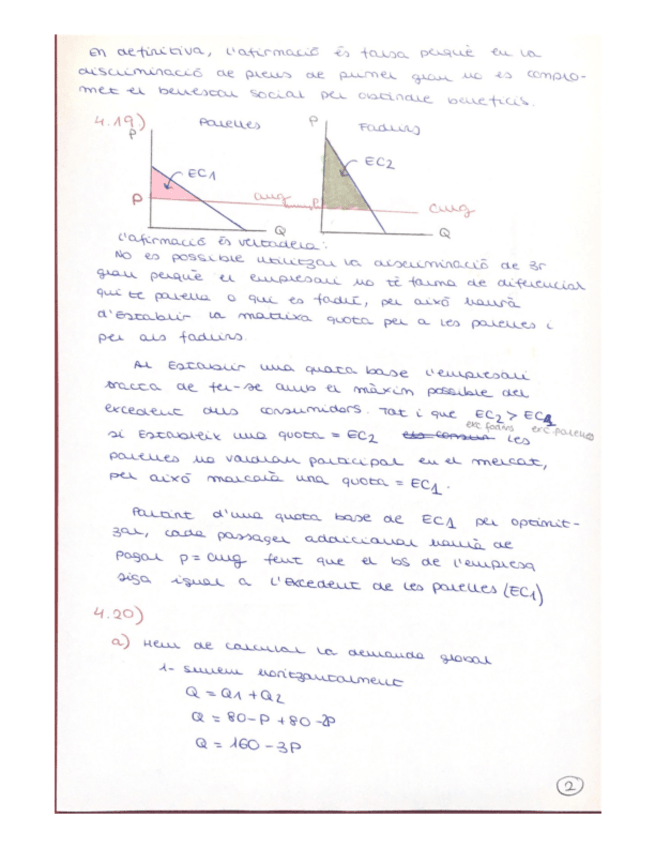 En definitiva, l'afirmació és falsa perquè en la
discriminació de preus de primer grau no es compro-
met el benestar social per obtindre beneficis.
4.19)
P Parelles P Fadrins
EC1 EC2
P cmg P cmg
Q Q
L'afirmació és vertadera:
No es possible utilitzar la discriminació de 3r
grau perquè el empresari no té forma de diferenciar
qui te parella o qui es fadrí, per això haurà
d'establir la mateixa quota per a les parelles i
per als fadrins.
Al establir una quota base l'empresari
tracta de fer-se amb el màxim possible del
excedent dels consumidors. Tot i que EC2 > EC1
exc fadrins exc parelles
si estableix una quota = EC2 els consum les
parelles no voldran participar en el mercat,
per això marcarà una quota = EC1.
Partint d'una quota base de EC1 per optimit-
zar, cada passager addicional haurà de
pagar p = cmg fent que el bs de l'empresa
siga igual a l'excedent de les parelles (EC1)
4.20)
a) Hem de calcular la demanda global
1- sumem horitzontalment
Q = Q1 + Q2
Q = 80 - P + 80 - 2P
Q = 160 - 3P
2